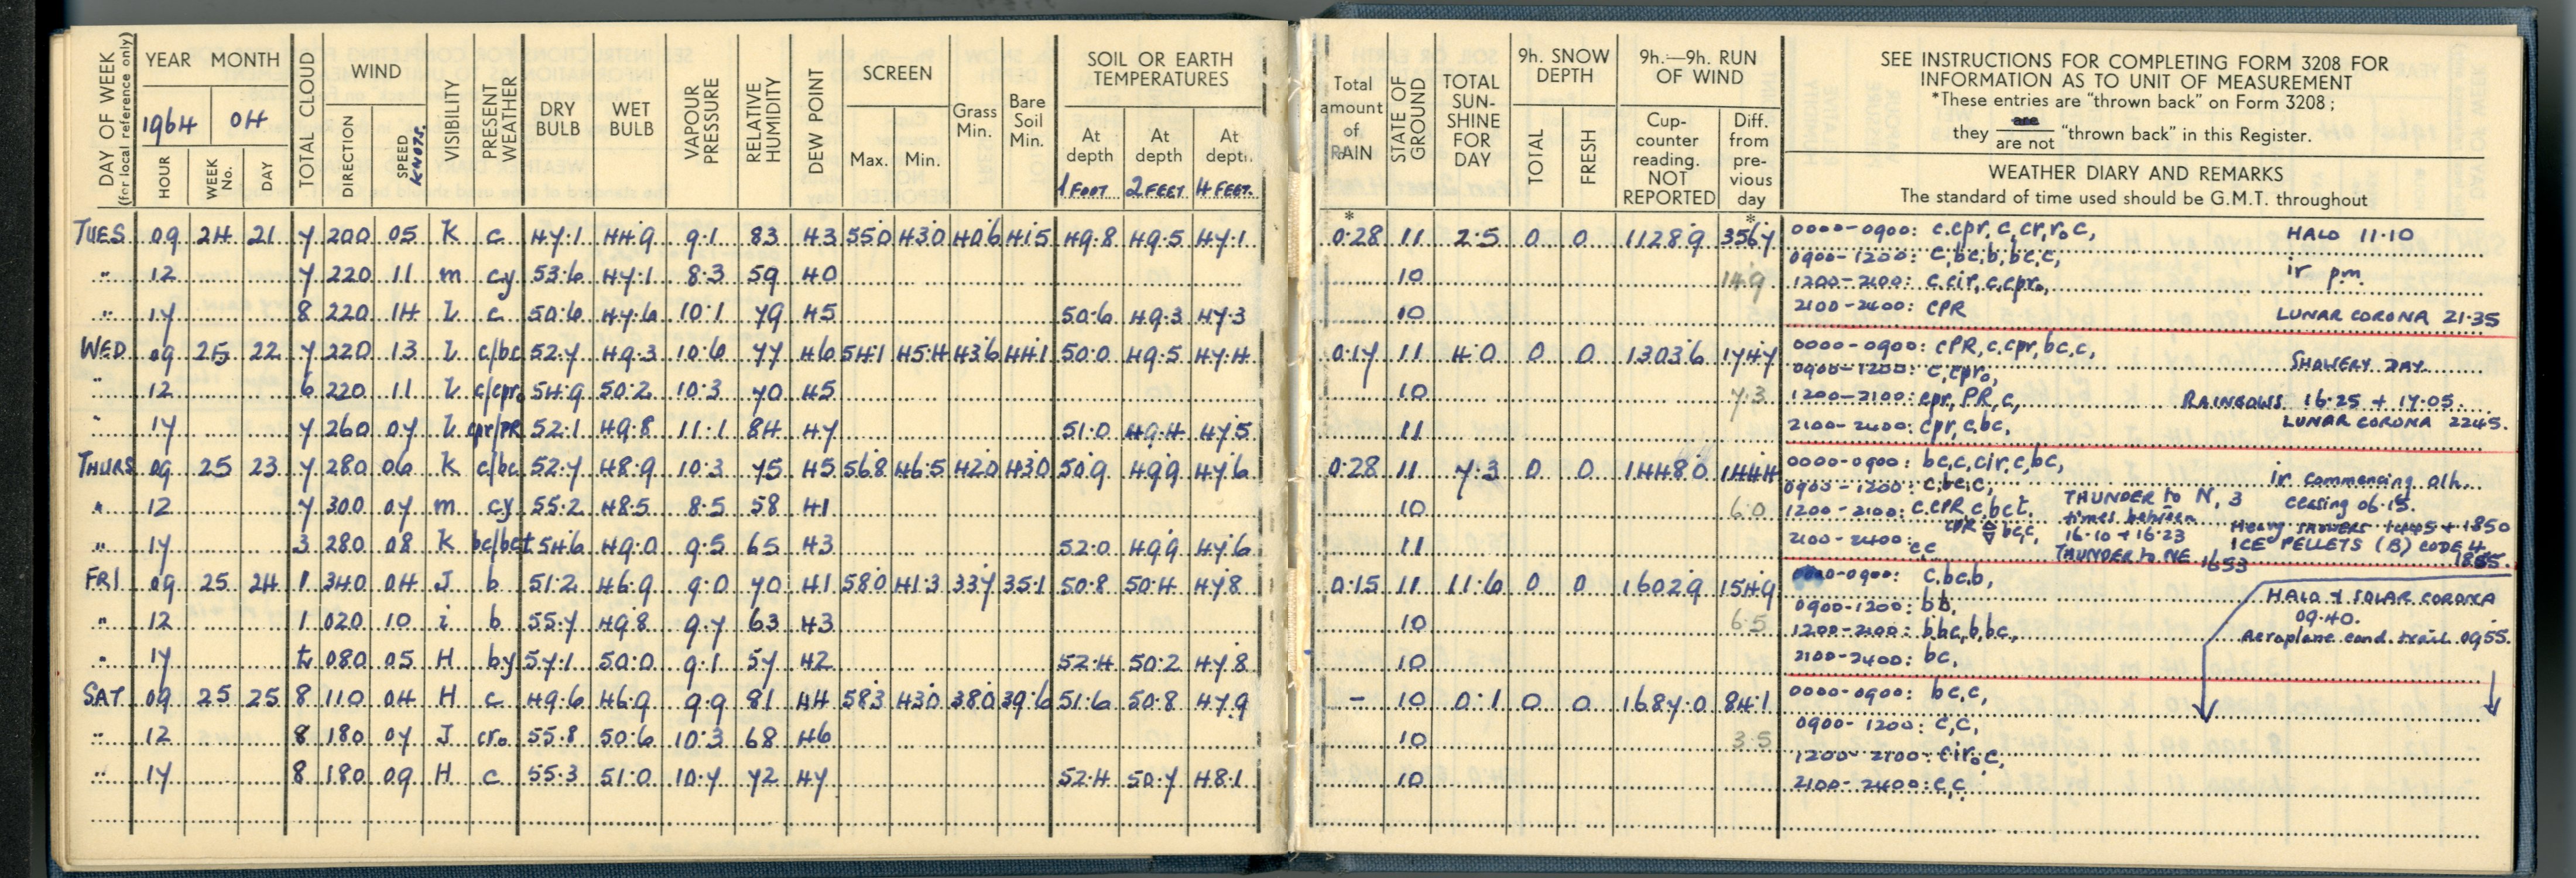 DAY OF WEEK (for local reference only)
YEAR MONTH
1964 04
HOUR WEEK No. DAY
TOTAL CLOUD
WIND
DIRECTION SPEED KNOTS.
VISIBILITY
PRESENT WEATHER
DRY BULB
WET BULB
VAPOUR PRESSURE
RELATIVE HUMIDITY
DEW POINT
SCREEN
Max. Min.
Grass Min.
Bare Soil Min.
SOIL OR EARTH TEMPERATURES
At depth 1 FOOT At depth 2 FEET At depth 4 FEET.
Total amount of RAIN
STATE OF GROUND
TOTAL SUN-SHINE FOR DAY
9h. SNOW DEPTH
TOTAL FRESH
9h.—9h. RUN OF WIND
Cup-counter reading. NOT REPORTED
Diff. from pre-vious day
SEE INSTRUCTIONS FOR COMPLETING FORM 3208 FOR
INFORMATION AS TO UNIT OF MEASUREMENT
*These entries are "thrown back" on Form 3208;
they are / are not "thrown back" in this Register.
WEATHER DIARY AND REMARKS
The standard of time used should be G.M.T. throughout
* *
TUES 09 24 21 7 200 05 K c 47·1 44·9 9·1 83 43 55·0 43·0 40·6 41·5 49·8 49·5 47·1 0·28 11 2·5 0 0 1128·9 356·7 0000-0900: c.cpr, c, cr, r₀ c, HALO 11·10
" 12 7 220 11 m cy 53·6 47·1 8·3 59 40 10 14·9 0900-1200: c, bc, b, bc, c, ir pm
1200-2100: c.cir, c.cpr₀,
" 17 8 220 14 L c 50·6 47·6 10·1 79 45 50·6 49·3 47·3 10 2100-2400: cPR LUNAR CORONA 21·35
WED 09 25 22 7 220 13 L c/bc 52·7 49·3 10·6 77 46 54·1 45·4 43·6 44·1 50·0 49·5 47·4 0·17 11 4·0 0 0 1303·6 174·7 0000-0900: cPR, c, cpr, bc, c, SHOWERY DAY
" 12 6 220 11 L c/cpr₀ 54·9 50·2 10·3 70 45 10 7·3 0900-1200: c, cpr₀,
1200-2100: cpr, PR, c, RAINBOWS 16·25 + 17·05.
" 17 7 260 07 L cpr/PR 52·1 49·8 11·1 84 47 51·0 49·4 47·5 11 2100-2400: cpr, c, bc, LUNAR CORONA 2245.
THURS 09 25 23 7 280 06 K c/bc 52·7 48·9 10·3 75 45 56·8 46·5 42·0 43·0 50·9 49·9 47·6 0·28 11 7·3 0 0 1448·0 144·4 0000-0900: bc, c, cir, c, bc, ir commencing 01h.. ceasing 06·15.
" 12 7 300 07 m cy 55·2 48·5 8·5 58 41 10 6·0 0900-1200: c, bc, c, THUNDER to N, 3 times between 16·10 + 16·23
1200-2100: c.cPR c, bct, cPR bc, c, Heavy showers + 1850
" 17 3 280 08 K bc/bct 54·6 49·0 9·5 65 43 52·0 49·9 47·6 11 2100-2400: cc THUNDER to NE 1653 ICE PELLETS (B) CODE 4 1855
FRI 09 25 24 1 340 04 J b 51·2 46·9 9·0 70 41 58·0 41·3 33·7 35·1 50·8 50·4 47·8 0·15 11 11·6 0 0 1602·9 154·9 0000-0900: c, bc, b, HALO + SOLAR CORONA 09·40.
" 12 1 020 10 i b 55·7 49·8 9·7 63 43 10 6·5 0900-1200: bb,
1200-2100: b, bc, b, bc, Aeroplane cond. trail 0955.
" 17 tr 080 05 H by 57·1 50·0 9·1 57 42 52·4 50·2 47·8 10 2100-2400: bc,
SAT 09 25 25 8 110 04 H c 49·6 46·9 9·9 81 44 58·3 43·0 38·0 39·6 51·6 50·8 47·9 – 10 0·1 0 0 1687·0 84·1 0000-0900: bc, c,
" 12 8 180 07 J cr₀ 55·8 50·6 10·3 68 46 10 3·5 0900-1200: c, c,
1200-2100: cir₀ c,
" 17 8 180 09 H c 55·3 51·0 10·7 72 47 52·4 50·7 48·1 10 2100-2400: c, c